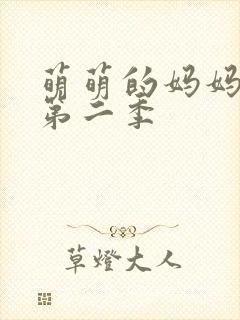 萌萌的妈妈
第二季
草燈大人